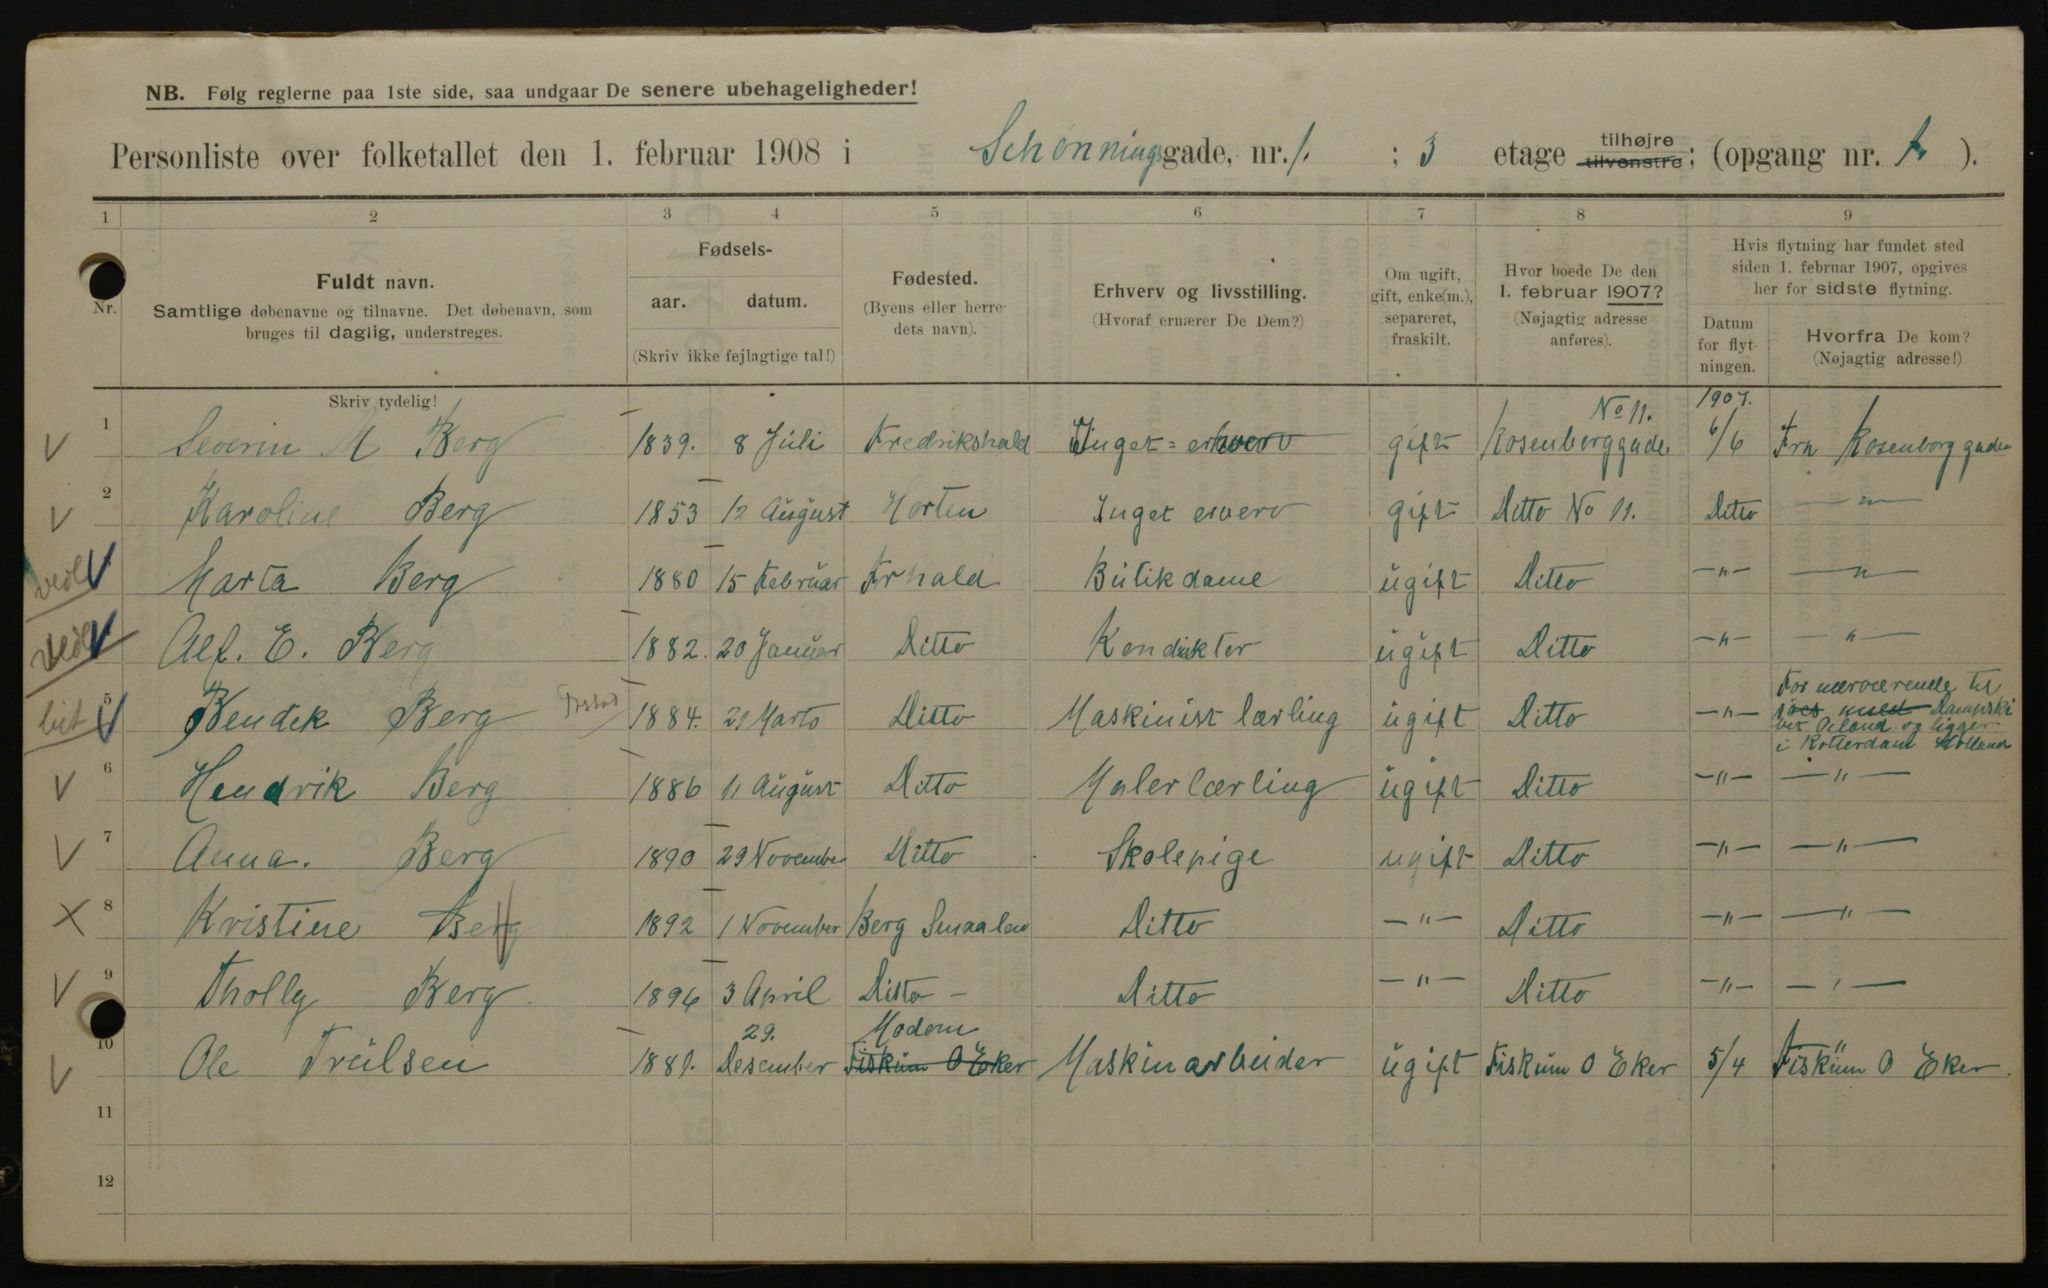 NB. Følg reglerne paa 1ste side, saa undgaar De senere ubehageligheder!
Personliste over folketallet den 1. februar 1908 i Schønningsgade, nr. 1. ; 3 etage tilhøjre tilvenstre; (opgang nr. ).
1 2 3 4 5 6 7 8 9
Nr. Fuldt navn. Samtlige døbenavne og tilnavne. Det døbenavn, som bruges til daglig, understreges.
Skriv tydelig!
Fødsels- aar. datum. (Skriv ikke fejlagtige tal!)
Fødested. (Byens eller herredets navn).
Erhverv og livsstilling. (Hvoraf ernærer De Dem?)
Om ugift, gift, enke(m.), separeret, fraskilt.
Hvor boede De den 1. februar 1907? (Nøjagtig adresse anføres).
Hvis flytning har fundet sted siden 1. februar 1907, opgives her for sidste flytning.
Datum for flytningen.
Hvorfra De kom? (Nøjagtig adresse!)
1 Severin M Berg 1839. 8 Juli Fredrikshald Inget = erhverv gift No 11. Rosenborggade. 1907. 6/6 Fra Rosenborggaden
2 Karoline Berg 1853 12 August Horten Inget erverv gift Ditto No 11. Ditto — " —
vedl Marta Berg 1880 15 Februar Frhald Butikdame ugift Ditto — " — — " —
vedl Alf. E. Berg 1882. 20 Januar Ditto Konduktor ugift Ditto — " — — " —
5 Bendik Berg 1884. 21 Marts Ditto Maskinist lærling ugift Ditto — " — For nærværende til søes med Dampski bet Øiland og ligger i Rotterdam Holland
6 Hendrik Berg 1886 11 August Ditto Malerlærling ugift Ditto — " — — " —
7 Anna. Berg 1890 29 November Ditto Skolepige ugift Ditto — " — — " —
8 Kristine Berg 1892 1 November Berg Smaalen Ditto — " — Ditto — " — — " —
9 Tholly Berg 1896 3 April Ditto — Ditto — " — Ditto — " — — " —
10 Ole Trulsen 1881. 29. Desember Modum Fiskum O Eker Maskinarbeider ugift Fiskum O Eker 5/4 Fiskum O Eker.
11
12